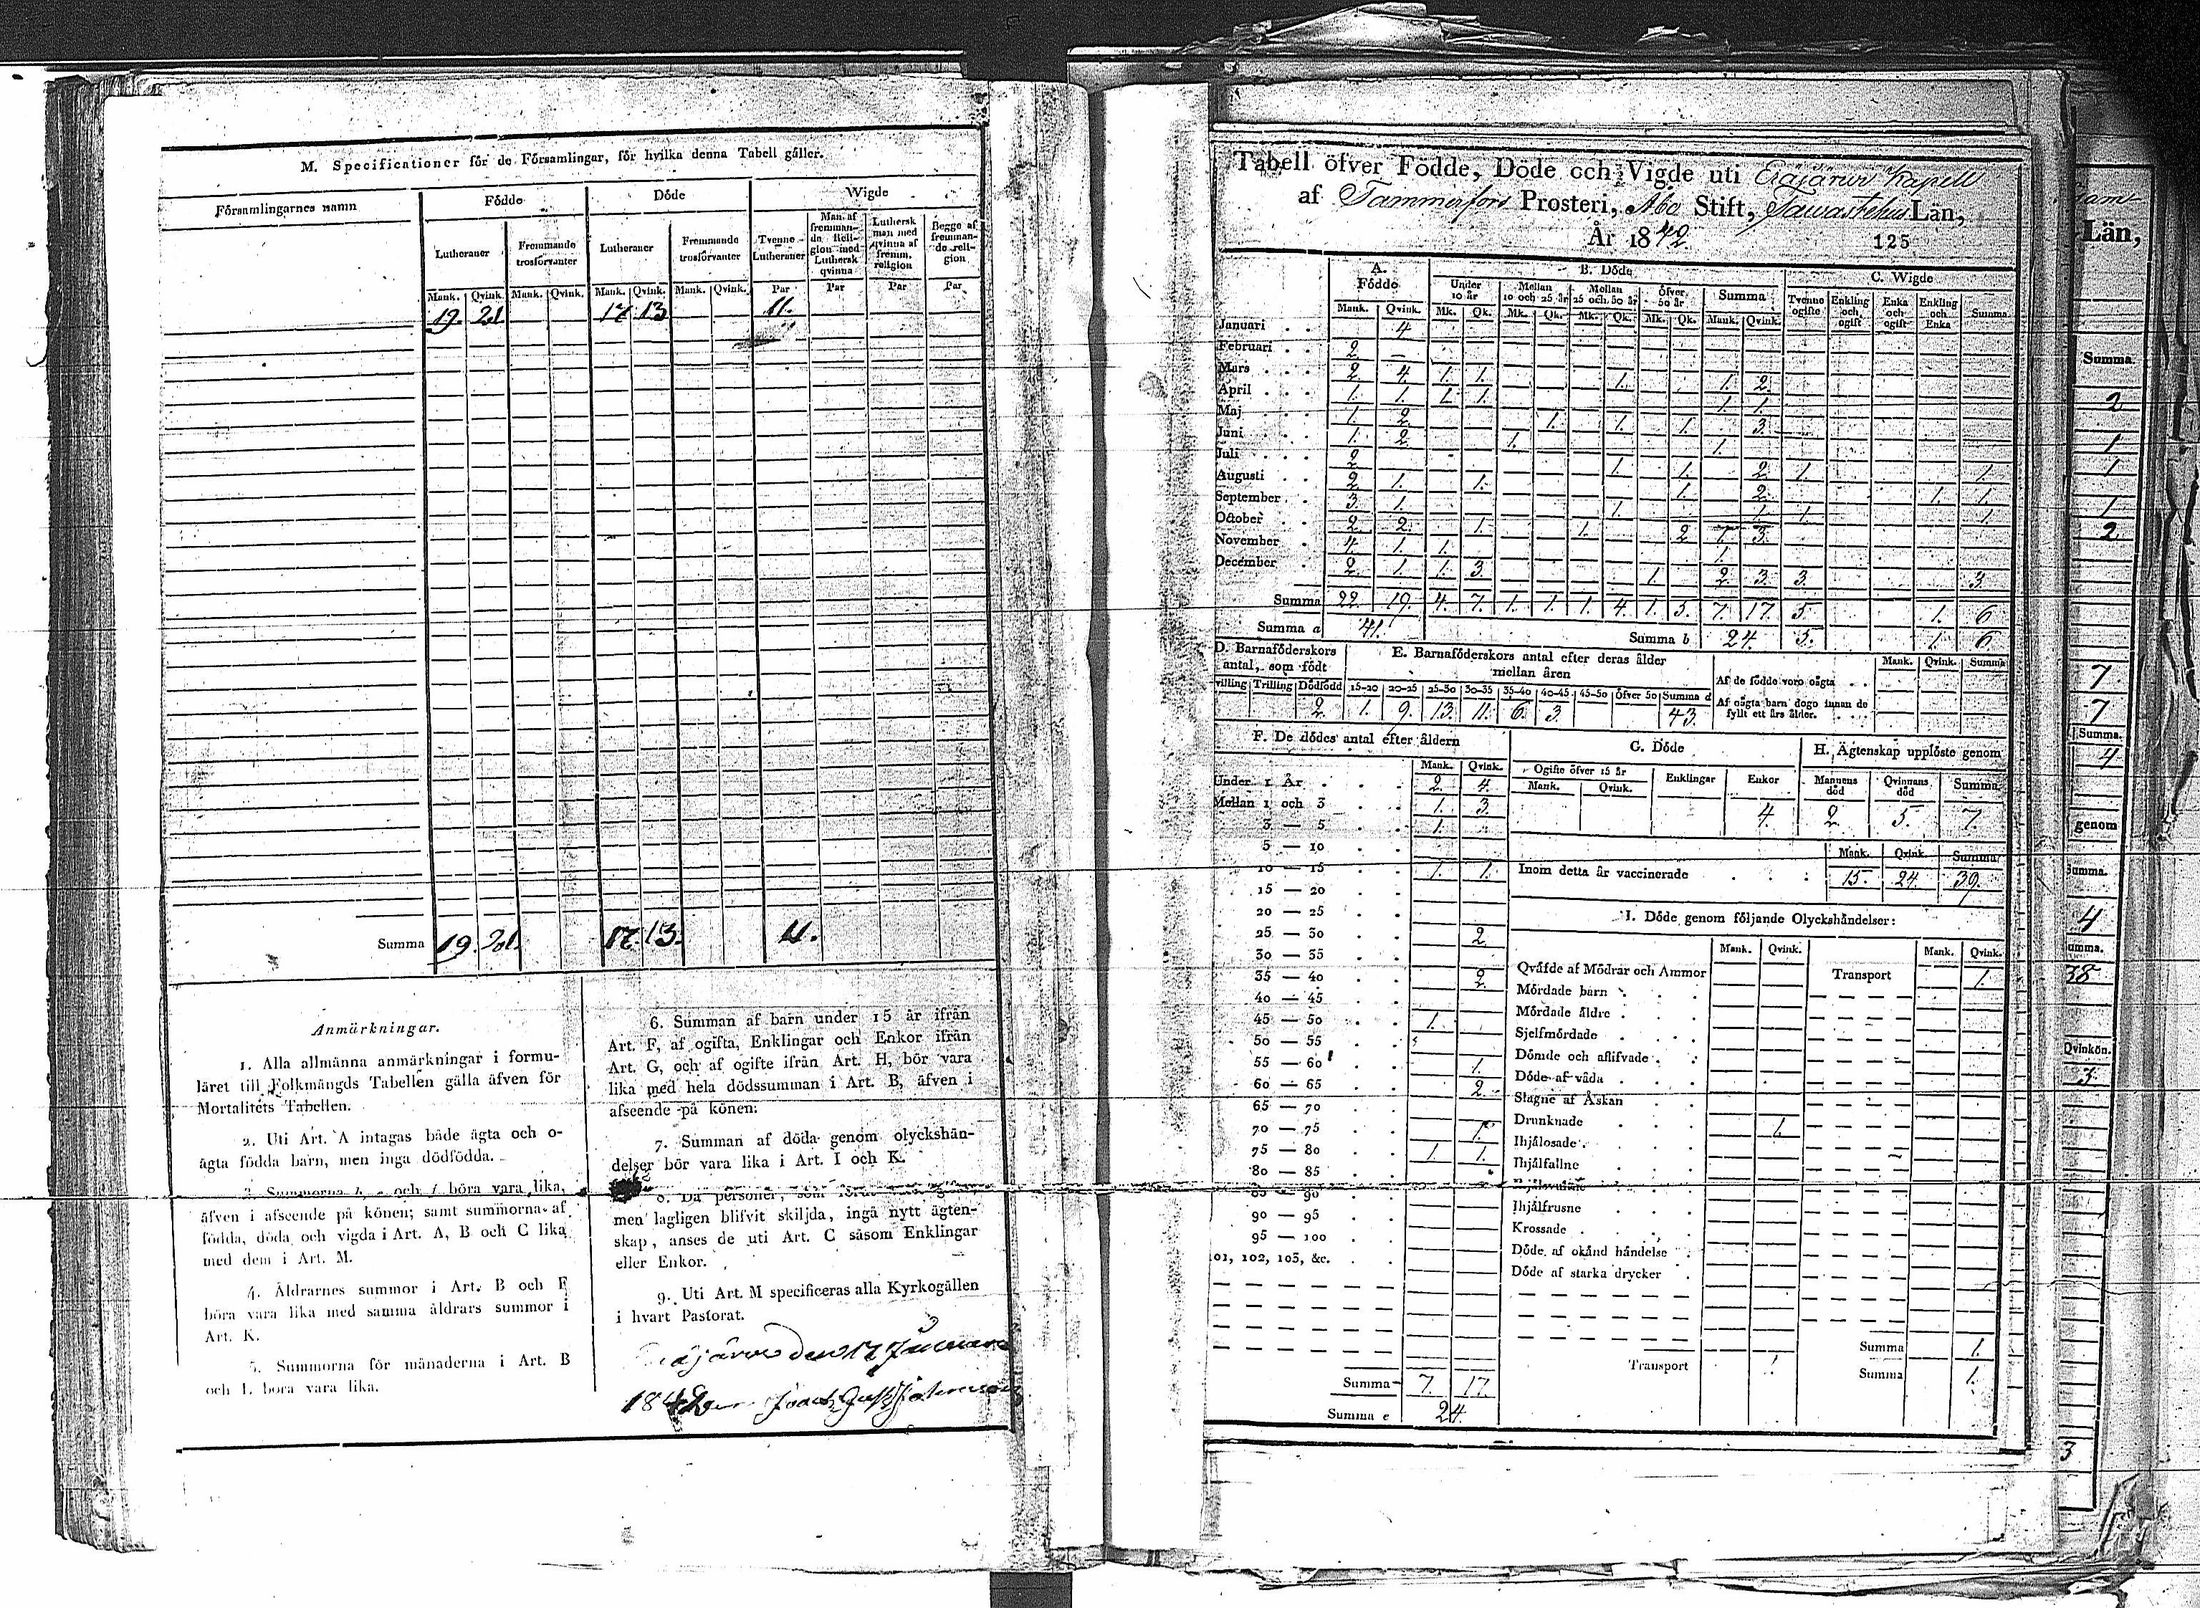 M. Specificationer för de Församlingar, för hvilka denna Tabell gäller.
Församlingarnes namn
Födde
Döde
Wigde
Lutheraner
Fremmande trosförvanter
Lutheraner
Fremmande trosförvanter
Tvenne Lutheraner
Man af fremmande Religion med Luthersk qvinna
Luthersk man med qvinna af fremm. religion
Begge af fremmande religion
Mank. Qvink. Mank. Qvink. Mank. Qvink. Mank. Qvink. Par Par Par Par
19. 21 17 13 11.
Summa 19. 21. 17. 13. 11.
Anmärkningar.
1. Alla allmänna anmärkningar i formu-
läret till Folkmängds Tabellen gälla äfven för
Mortalitets Tabellen.
2. Uti Art. A intagas både ägta och o-
ägta födda barn, men inga dödfödda.
3. Summorna b, e och f böra vara lika,
äfven i afseende på könen; samt summorna af
födda, döda och vigda i Art. A, B och C lika
med dem i Art. M.
4. Åldrarnes summor i Art. B och F
böra vara lika med samma åldrars summor i
Art. K.
5. Summorna för månaderna i Art. B
och L böra vara lika.
6. Summan af barn under 15 år ifrån
Art. F, af ogifta, Enklingar och Enkor ifrån
Art. G, och af ogifte ifrån Art. H, bör vara
lika med hela dödssumman i Art. B, äfven i
afseende på könen.
7. Summan af döda genom olyckshän-
delser bör vara lika i Art. I och K.
8. Då personer, som
men lagligen blifvit skiljda, ingå nytt ägten-
skap, anses de uti Art. C såsom Enklingar
eller Enkor.
9. Uti Art. M specificeras alla Kyrkogällen
i hvart Pastorat.
den 17 Januari
Tabell öfver Födde, Döde och Vigde uti Eräjärvi Kapell
af Tammerfors Prosteri, Åbo Stift, Tawastehus Län,
År 1842
125
A. Födde
B. Döde
C. Wigde
Under 10 år
Mellan 10 och 25 år
Mellan 25 och 50 år
Öfver 50 år
Summa
Tvenne ogifte
Enkling och ogift
Enka och ogift
Enkling och Enka
Summa
Mank. Qvink. Mk. Qk. Mk. Qk. Mk. Qk. Mk. Qk. Mank. Qvink.
Januari 4
Februari 2
Mars 2 4. 1. 1. 1. 1. 2.
April 1. 1. 1. 1. 1. 1.
Maj 1. 2 1. 1. 1. 3.
Juni 1. 2. 1. 1.
Juli 2 1. 1. 2 1. 1.
Augusti 2 1. 1. 1. 2. 1. 1.
September 3. 1. 1. 1. 1. 1.
October 2 2. 1. 1. 2 1. 3.
November 4. 1. 1. 1.
December 2. 1. 1. 3. 1. 2. 3. 3. 3.
Summa 22. 19. 4. 7. 1. 1. 1. 4. 1. 5. 7. 17. 5. 1. 6
Summa a 41. Summa b 24. 5. 1. 6
D. Barnaföderskors antal, som födt
E. Barnaföderskors antal efter deras ålder mellan åren
Mank. Qvink. Summa
Af de födde voro oägta
Af oägta barn dogo innan de fyllt ett års ålder.
villing Trilling Dödfödd 15-20 20-25 25-30 30-35 35-40 40-45 45-50 Öfver 50 Summa d
2. 1. 9. 13. 11. 6. 3. 43.
F. De dödes antal efter åldern
Mank. Qvink.
Under 1 År 2. 4.
Mellan 1 och 3 1. 3.
3 — 5 1.
5 — 10
10 — 15 1. 1.
15 — 20
20 — 25
25 — 30 2
30 — 35
35 — 40 2.
40 — 45
45 — 50 1.
50 — 55
55 — 60 1.
60 — 65 2.
65 — 70
70 — 75 1.
75 — 80 1 1.
80 — 85
85 — 90
90 — 95
95 — 100
101, 102, 103, &c.
Summa 7. 17.
Summa e 24.
G. Döde
Ogifte öfver 15 år
Mank. Qvink.
Enklingar
Enkor
4.
H. Ägtenskap upplöste genom
Mannens död
Qvinnans död
Summa
2. 5. 7.
Mank. Qvink. Summa
Inom detta år vaccinerade 15. 24. 39.
I. Döde genom följande Olyckshändelser:
Mank. Qvink. Mank. Qvink.
Qväfde af Mödrar och Ammor
Transport 1.
Mördade barn
Mördade äldre
Sjelfmördade
Dömde och aflifvade
Döde af våda
Slagne af Åskan
Drunknade 1.
Ihjälosade
Ihjälfallne
Ihjälfrusne
Krossade
Döde af okänd händelse
Döde af starka drycker
Summa 1.
Transport 1
Summa 1.
Län,
Summa.
2
1
1
1
2
7
7
Summa.
4
genom
Summa.
4
38
Qvinkön.
3
3